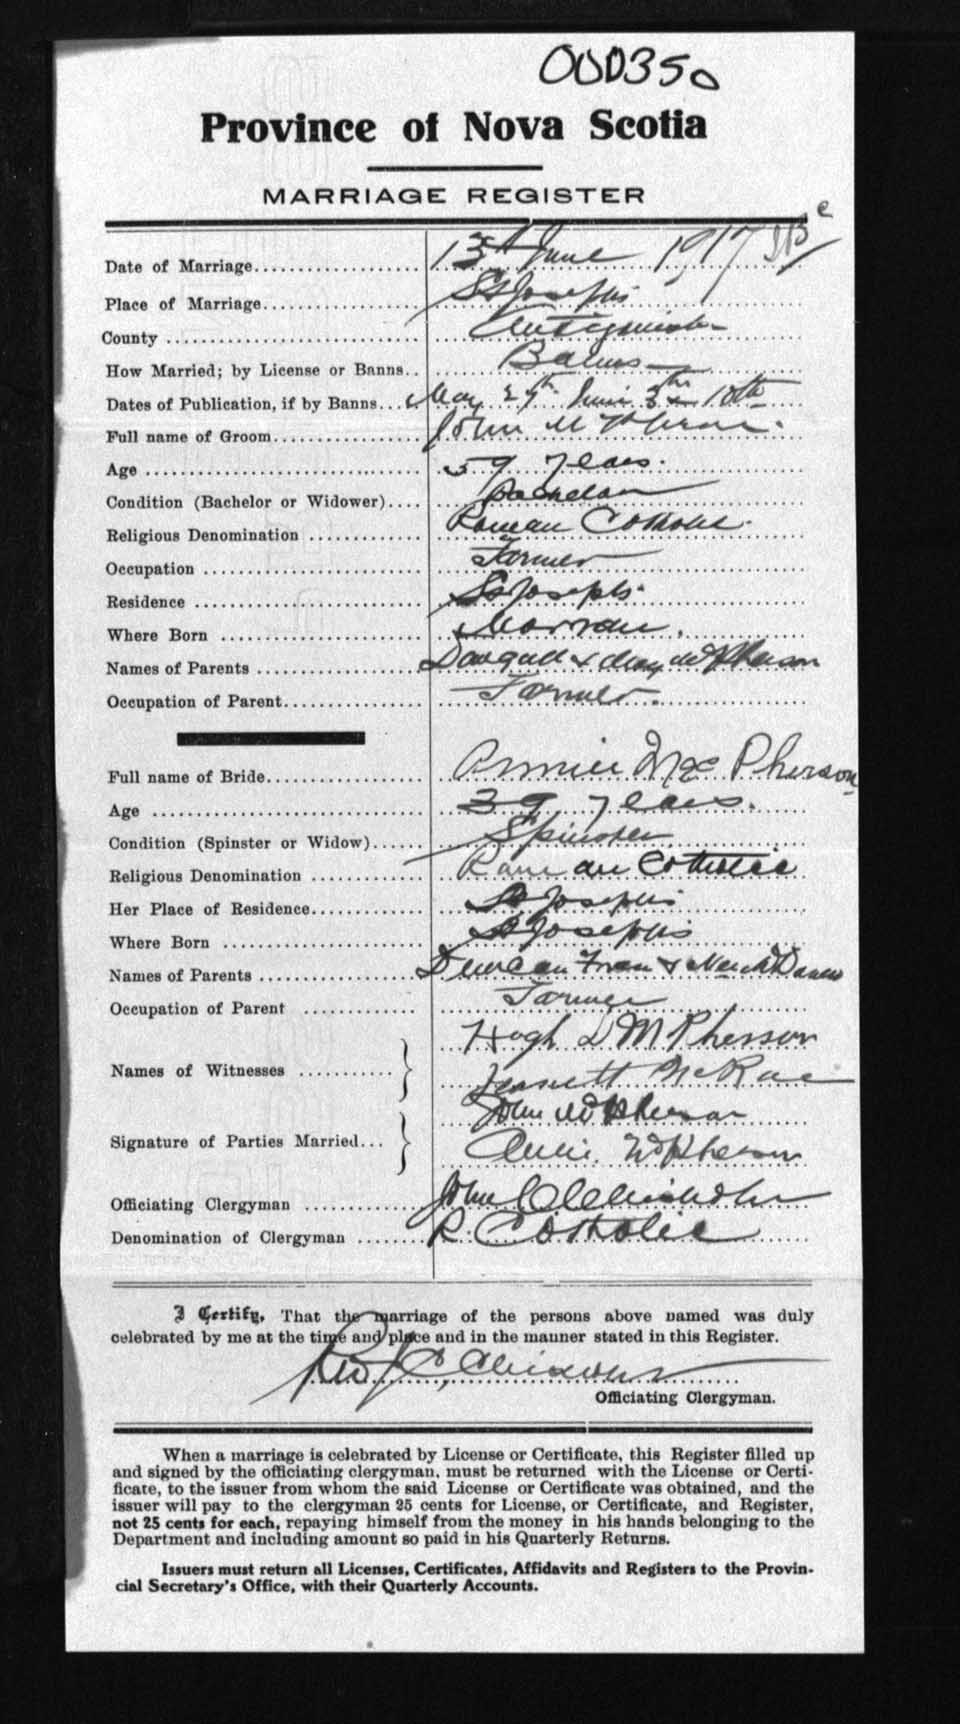 000350
Province of Nova Scotia
MARRIAGE REGISTER
Date of Marriage 13th June 1917
Place of Marriage St Josephs
County Antigonish
How Married; by License or Banns Banns
Dates of Publication, if by Banns May 27th June 3rd 10th
Full name of Groom John McPherson
Age 59 years.
Condition (Bachelor or Widower) Bachelor
Religious Denomination Roman Catholic
Occupation Farmer
Residence St Josephs
Where Born
Names of Parents Dougall & Mary McPherson
Occupation of Parent Farmer
Full name of Bride Annie MacPherson
Age 39 years.
Condition (Spinster or Widow) Spinster
Religious Denomination Roman Catholic
Her Place of Residence St Josephs
Where Born St Josephs
Names of Parents Duncan &
Occupation of Parent Farmer
Names of Witnesses Hugh D McPherson
McRae
Signature of Parties Married John McPherson
Annie McPherson
Officiating Clergyman John C Chisholm
Denomination of Clergyman R Catholic
I Certify, That the marriage of the persons above named was duly
celebrated by me at the time and place and in the manner stated in this Register.
Rev J C Chisholm
Officiating Clergyman.
When a marriage is celebrated by License or Certificate, this Register filled up
and signed by the officiating clergyman, must be returned with the License or Certi-
ficate, to the issuer from whom the said License or Certificate was obtained, and the
issuer will pay to the clergyman 25 cents for License, or Certificate, and Register,
not 25 cents for each, repaying himself from the money in his hands belonging to the
Department and including amount so paid in his Quarterly Returns.
Issuers must return all Licenses, Certificates, Affidavits and Registers to the Provin-
cial Secretary's Office, with their Quarterly Accounts.